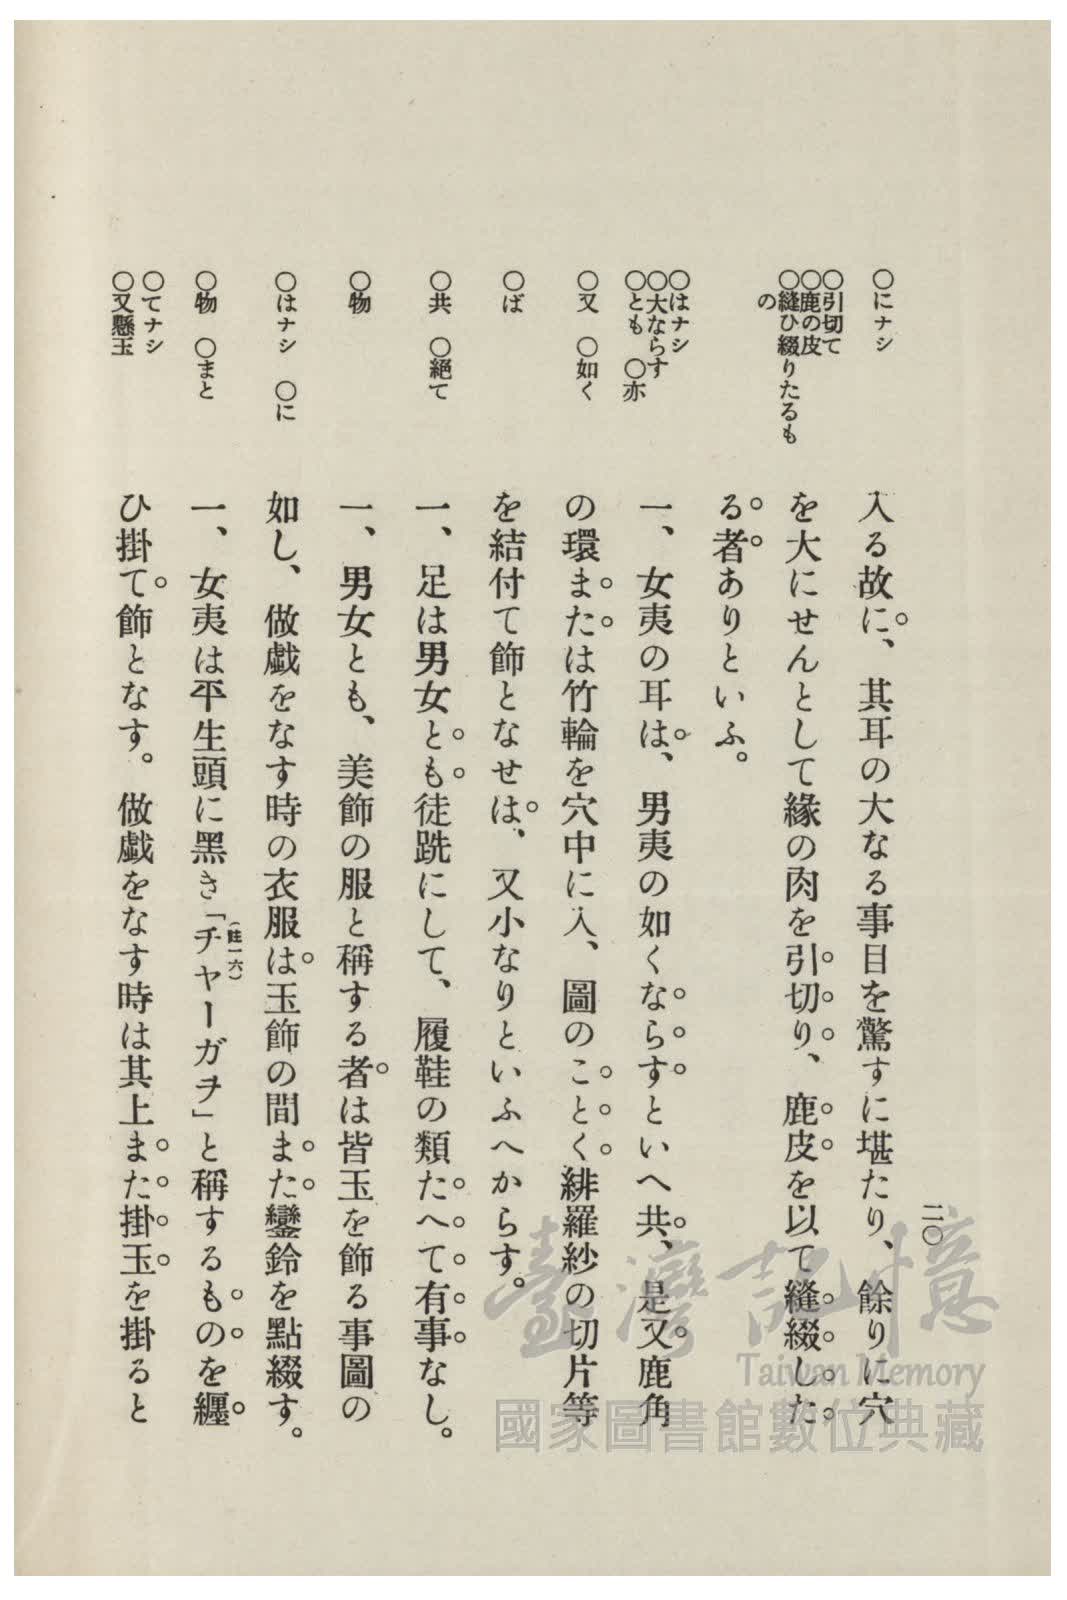 二〇
○にナシ
○引切て
○鹿の皮
○縫ひ綴りたるも
の
○はナシ
○大ならす
○とも　○亦
○又　○如く
○ば
○共　○絕て
○物
○はナシ　○に
○物　○まと
○てナシ
○又懸玉
入る故に、其耳の大なる事目を驚すに堪たり、餘りに穴
を大にせんとして緣の肉を引切り、鹿皮を以て縫綴した
る者ありといふ。
一、女夷の耳は、男夷の如くならすといへ共、是又鹿角
の環または竹輪を穴中に入、圖のことく緋羅紗の切片等
を結付て飾となせは、又小なりといふへからす。
一、足は男女とも徒跣にして、履鞋の類たへて有事なし。
一、男女とも、美飾の服と稱する者は皆玉を飾る事圖の
如し、做戯をなす時の衣服は玉飾の間また鑾鈴を點綴す。
一、女夷は平生頭に黑き「チャーガヲ」と稱するものを纒
（註一六）
ひ掛て飾となす。做戯をなす時は其上また掛玉を掛ると
臺灣記憶
Taiwan Memory
國家圖書館數位典藏